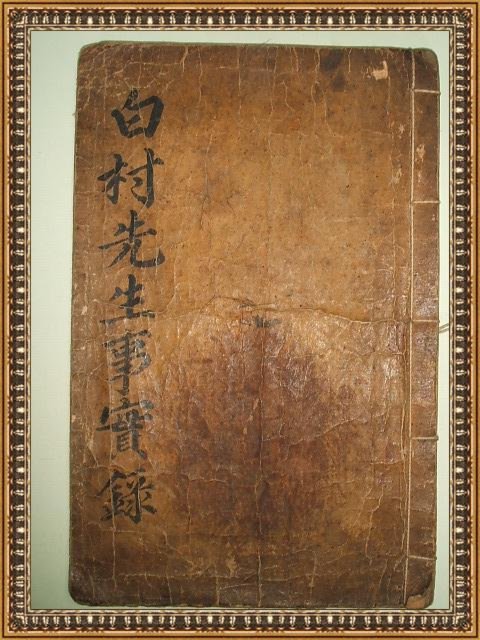 白村先生事實錄